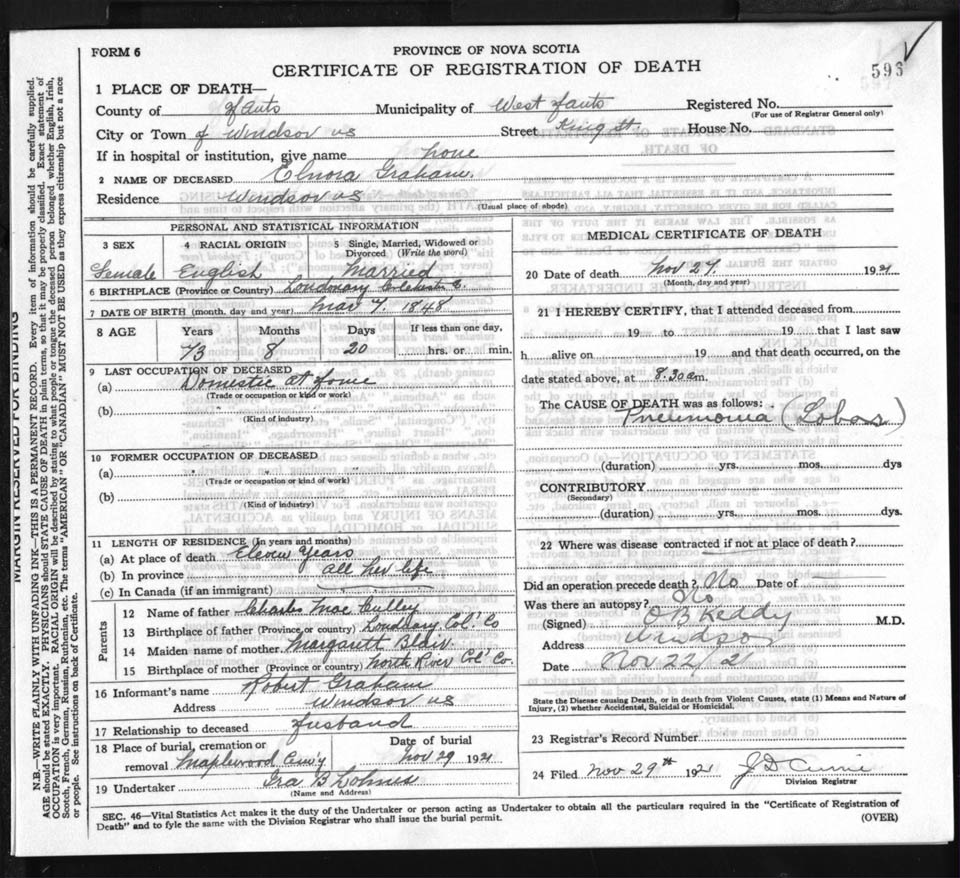 FORM 6
PROVINCE OF NOVA SCOTIA
CERTIFICATE OF REGISTRATION OF DEATH
593
1 PLACE OF DEATH—
County of Hants Municipality of West Hants Registered No.
(For use of Registrar General only)
City or Town of Windsor NS Street King St. House No.
If in hospital or institution, give name home
2 NAME OF DECEASED Elnora Graham.
Residence Windsor NS
(Usual place of abode)
PERSONAL AND STATISTICAL INFORMATION
3 SEX 4 RACIAL ORIGIN 5 Single, Married, Widowed or Divorced (Write the word)
Female English Married
6 BIRTHPLACE (Province or Country) Londonary Colchester C.
7 DATE OF BIRTH (month, day and year) Mar 7. 1848
8 AGE Years Months Days If less than one day,
73 8 20 hrs. or min.
9 LAST OCCUPATION OF DECEASED
(a) Domestic at home
(Trade or occupation or kind or work)
(b)
(Kind of industry)
10 FORMER OCCUPATION OF DECEASED
(a) " " "
(Trade or occupation or kind of work)
(b)
(Kind of industry)
11 LENGTH OF RESIDENCE (In years and months)
(a) At place of death Eleven Years
(b) In province all her life
(c) In Canada (if an immigrant)
Parents
12 Name of father Charles Mac Culley
13 Birthplace of father (Province, or country) Londonary Col. Co
14 Maiden name of mother Margarett Blair
15 Birthplace of mother (Province or country) North River Col Co.
16 Informant's name Robert Graham
Address Windsor NS
17 Relationship to deceased Husband
18 Place of burial, cremation or removal Maplewood Cem'y Date of burial Nov 29 1921
19 Undertaker Ira B Lohnes
(Name and Address)
MEDICAL CERTIFICATE OF DEATH
20 Date of death Nov 27. 1921
(Month, day and year)
21 I HEREBY CERTIFY, that I attended deceased from
19 to 19 that I last saw
h alive on 19 and that death occurred, on the
date stated above, at 8.30 am.
The CAUSE OF DEATH was as follows:
Pneumonia (Lobar)
(duration) yrs. mos. dys
CONTRIBUTORY
(Secondary)
(duration) yrs. mos. dys.
22 Where was disease contracted if not at place of death?
Did an operation precede death? No Date of
Was there an autopsy? No
(Signed) O B Keddy M.D.
Address Windsor
Date Nov 22/21
State the Disease causing Death, or in death from Violent Causes, state (1) Means and Nature of
Injury, (2) whether Accidental, Suicidal or Homicidal.
23 Registrar's Record Number
24 Filed Nov 29th 1921 J D Currie
Division Registrar
SEC. 46—Vital Statistics Act makes it the duty of the Undertaker or person acting as Undertaker to obtain all the particulars required in the "Certificate of Registration of
Death" and to fyle the same with the Division Registrar who shall issue the burial permit.
(OVER)
MARGIN RESERVED FOR BINDING
N.B.—WRITE PLAINLY WITH UNFADING INK—THIS IS A PERMANENT RECORD. Every item of information should be carefully supplied.
AGE should be stated EXACTLY. PHYSICIANS should STATE CAUSE OF DEATH in plain terms, so that it may be properly classified. Exact statement of
OCCUPATION is very important. RACIAL ORIGIN will be described by stating to what people or tongue the deceased person belonged whether English, Irish,
Scotch, French, German, Russian, Ruthenian, etc. The terms "AMERICAN" OR "CANADIAN" MUST NOT BE USED as they express citizenship but not a race
or people. See instructions on back of Certificate.